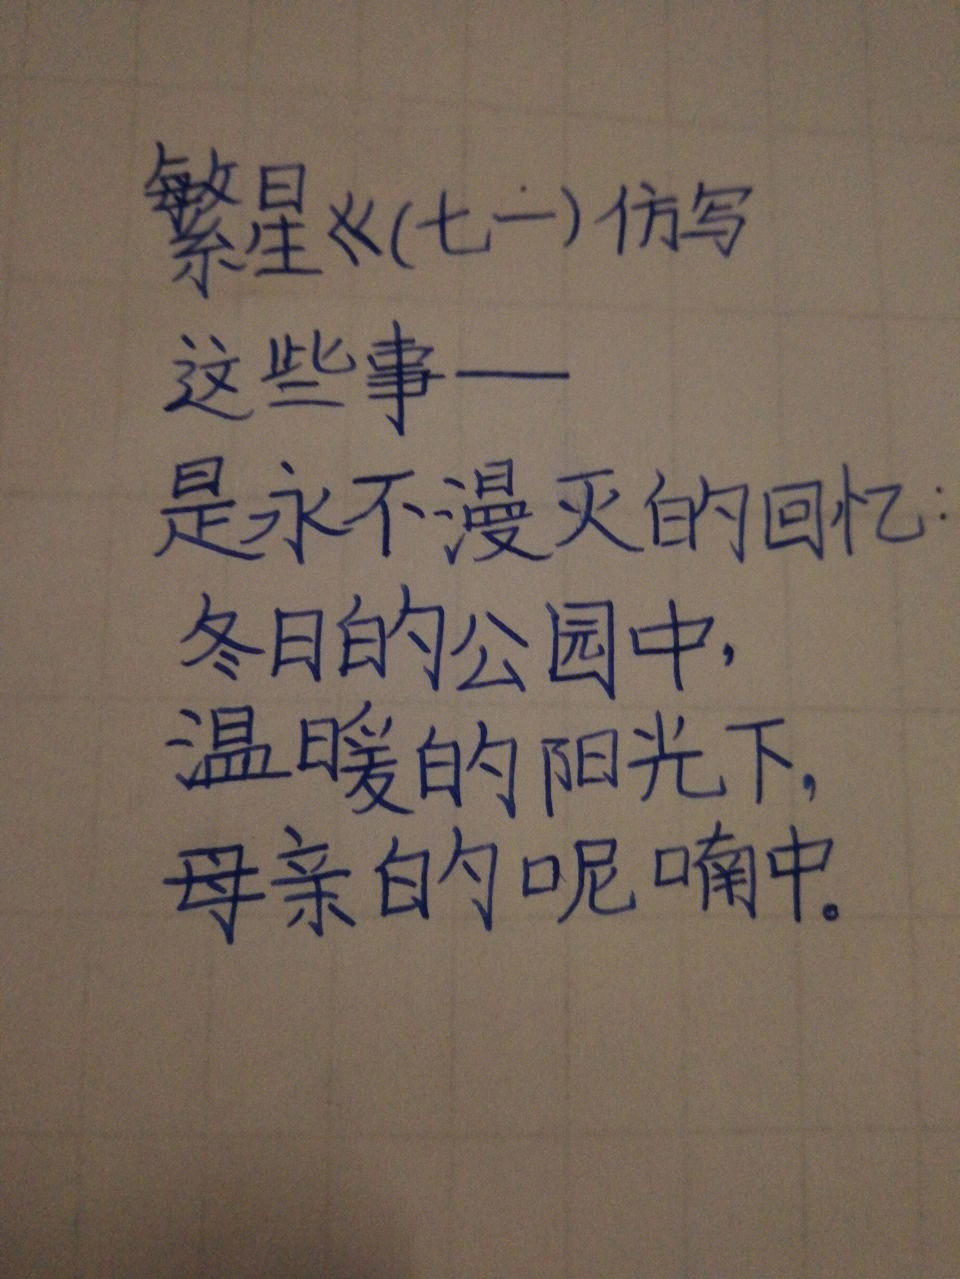 繁星《(七一)仿写
这些事——
是永不漫灭的回忆:
冬日的公园中,
温暖的阳光下,
母亲的呢喃中。